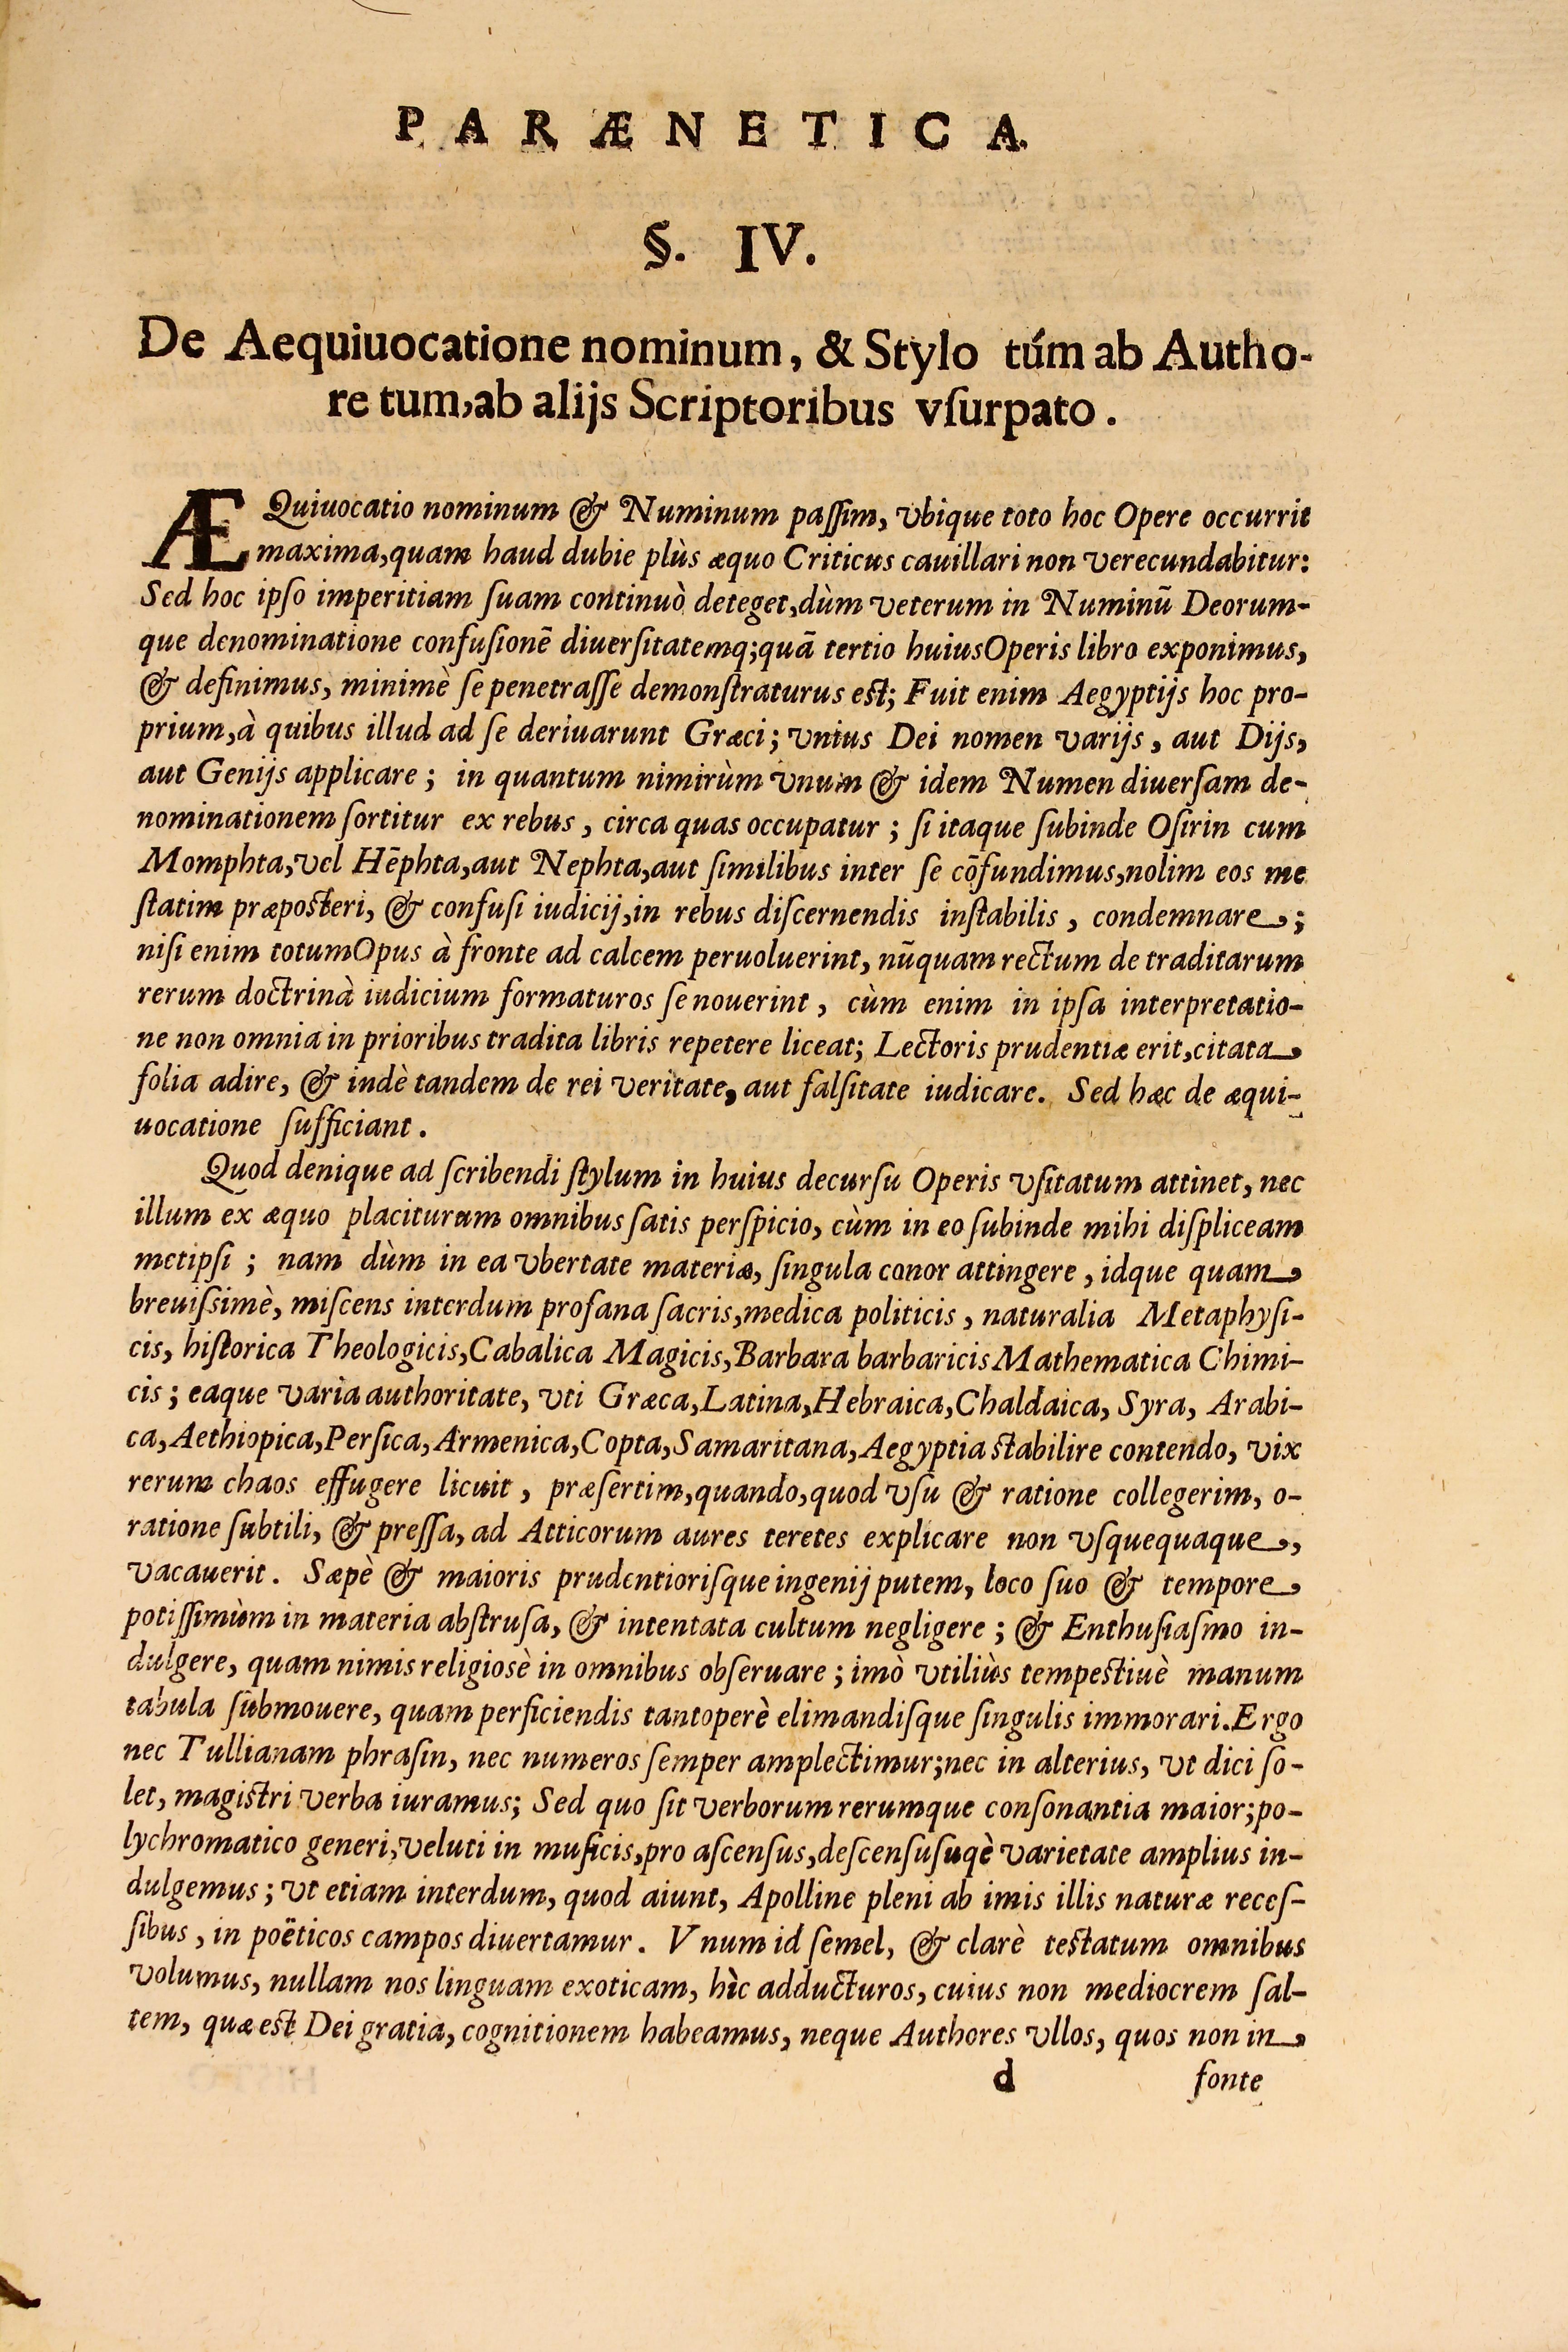 PARÆNETICA.
§. IV.
De Aequiuocatione nominum, & Stylo túm ab Autho-
re tum,ab alijs Scriptoribus vſurpato.
ÆQuiuocatio nominum & Numinum paſſim, vbique toto hoc Opere occurrit
maxima,quam haud dubie plùs æquo Criticus cauillari non verecundabitur:
Sed hoc ipſo imperitiam ſuam continuò deteget,dùm veterum in Numinū Deorum-
que denominatione confuſionē diuerſitatemq;quā tertio huiusOperis libro exponimus,
& definimus, minimè ſe penetraſſe demonſtraturus eſt; Fuit enim Aegyptijs hoc pro-
prium,à quibus illud ad ſe deriuarunt Græci; vnius Dei nomen varijs, aut Dijs,
aut Genijs applicare; in quantum nimirùm vnum & idem Numen diuerſam de-
nominationem ſortitur ex rebus, circa quas occupatur; ſi itaque ſubinde Oſirin cum
Momphta,vel Hēphta,aut Nephta,aut ſimilibus inter ſe cōfundimus,nolim eos me
ſtatim præpoſteri, & confuſi iudicij,in rebus diſcernendis inſtabilis, condemnare;
niſi enim totumOpus à fronte ad calcem peruoluerint, nūquam rectum de traditarum
rerum doctrinà iudicium formaturos ſe nouerint, cùm enim in ipſa interpretatio-
ne non omnia in prioribus tradita libris repetere liceat; Lectoris prudentiæ erit,citata
folia adire, & indè tandem de rei veritate, aut falſitate iudicare. Sed hæc de æqui-
uocatione ſufficiant.
Quod denique ad ſcribendi ſtylum in huius decurſu Operis vſitatum attinet, nec
illum ex æquo placiturum omnibus ſatis perſpicio, cùm in eo ſubinde mihi diſpliceam
metipſi; nam dùm in ea vbertate materiæ, ſingula conor attingere, idque quam
breuiſsimè, miſcens interdum profana ſacris,medica politicis, naturalia Metaphyſi-
cis, hiſtorica Theologicis,Cabalica Magicis,Barbara barbaricis Mathematica Chimi-
cis; eaque varia authoritate, vti Græca,Latina,Hebraica,Chaldaica, Syra, Arabi-
ca,Aethiopica,Perſica,Armenica,Copta,Samaritana,Aegyptia ſtabilire contendo, vix
rerum chaos effugere licuit, præſertim,quando,quod vſu & ratione collegerim, o-
ratione ſubtili, & preſſa, ad Atticorum aures teretes explicare non vſquequaque,
vacauerit. Sæpè & maioris prudentioriſque ingenij putem, loco ſuo & tempore
potiſſimùm in materia abſtruſa, & intentata cultum negligere; & Enthuſiaſmo in-
dulgere, quam nimis religiosè in omnibus obſeruare; imò vtiliùs tempeſtiuè manum
tabula ſubmouere, quam perficiendis tantoperè elimandiſque ſingulis immorari.Ergo
nec Tullianam phraſin, nec numeros ſemper amplectimur;nec in alterius, vt dici ſo-
let, magiſtri verba iuramus; Sed quo ſit verborum rerumque conſonantia maior;po-
lychromatico generi,veluti in muſicis,pro aſcenſus,deſcenſuſuqè varietate amplius in-
dulgemus; vt etiam interdum, quod aiunt, Apolline pleni ab imis illis naturæ receſ-
ſibus, in poëticos campos diuertamur. Vnum id ſemel, & clarè teſtatum omnibus
volumus, nullam nos linguam exoticam, hìc adducturos, cuius non mediocrem ſal-
tem, quæ eſt Dei gratia, cognitionem habeamus, neque Authores vllos, quos non in
d fonte